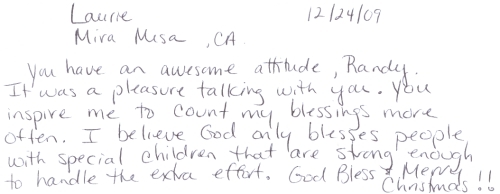 Laurie 12/24/09
Mira Mesa, CA
You have an awesome attitude, Randy.
It was a pleasure talking with you. You
inspire me to count my blessings more
often. I believe God only blesses people
with special children that are strong enough
to handle the extra effort. God Bless & Merry
Christmas!!